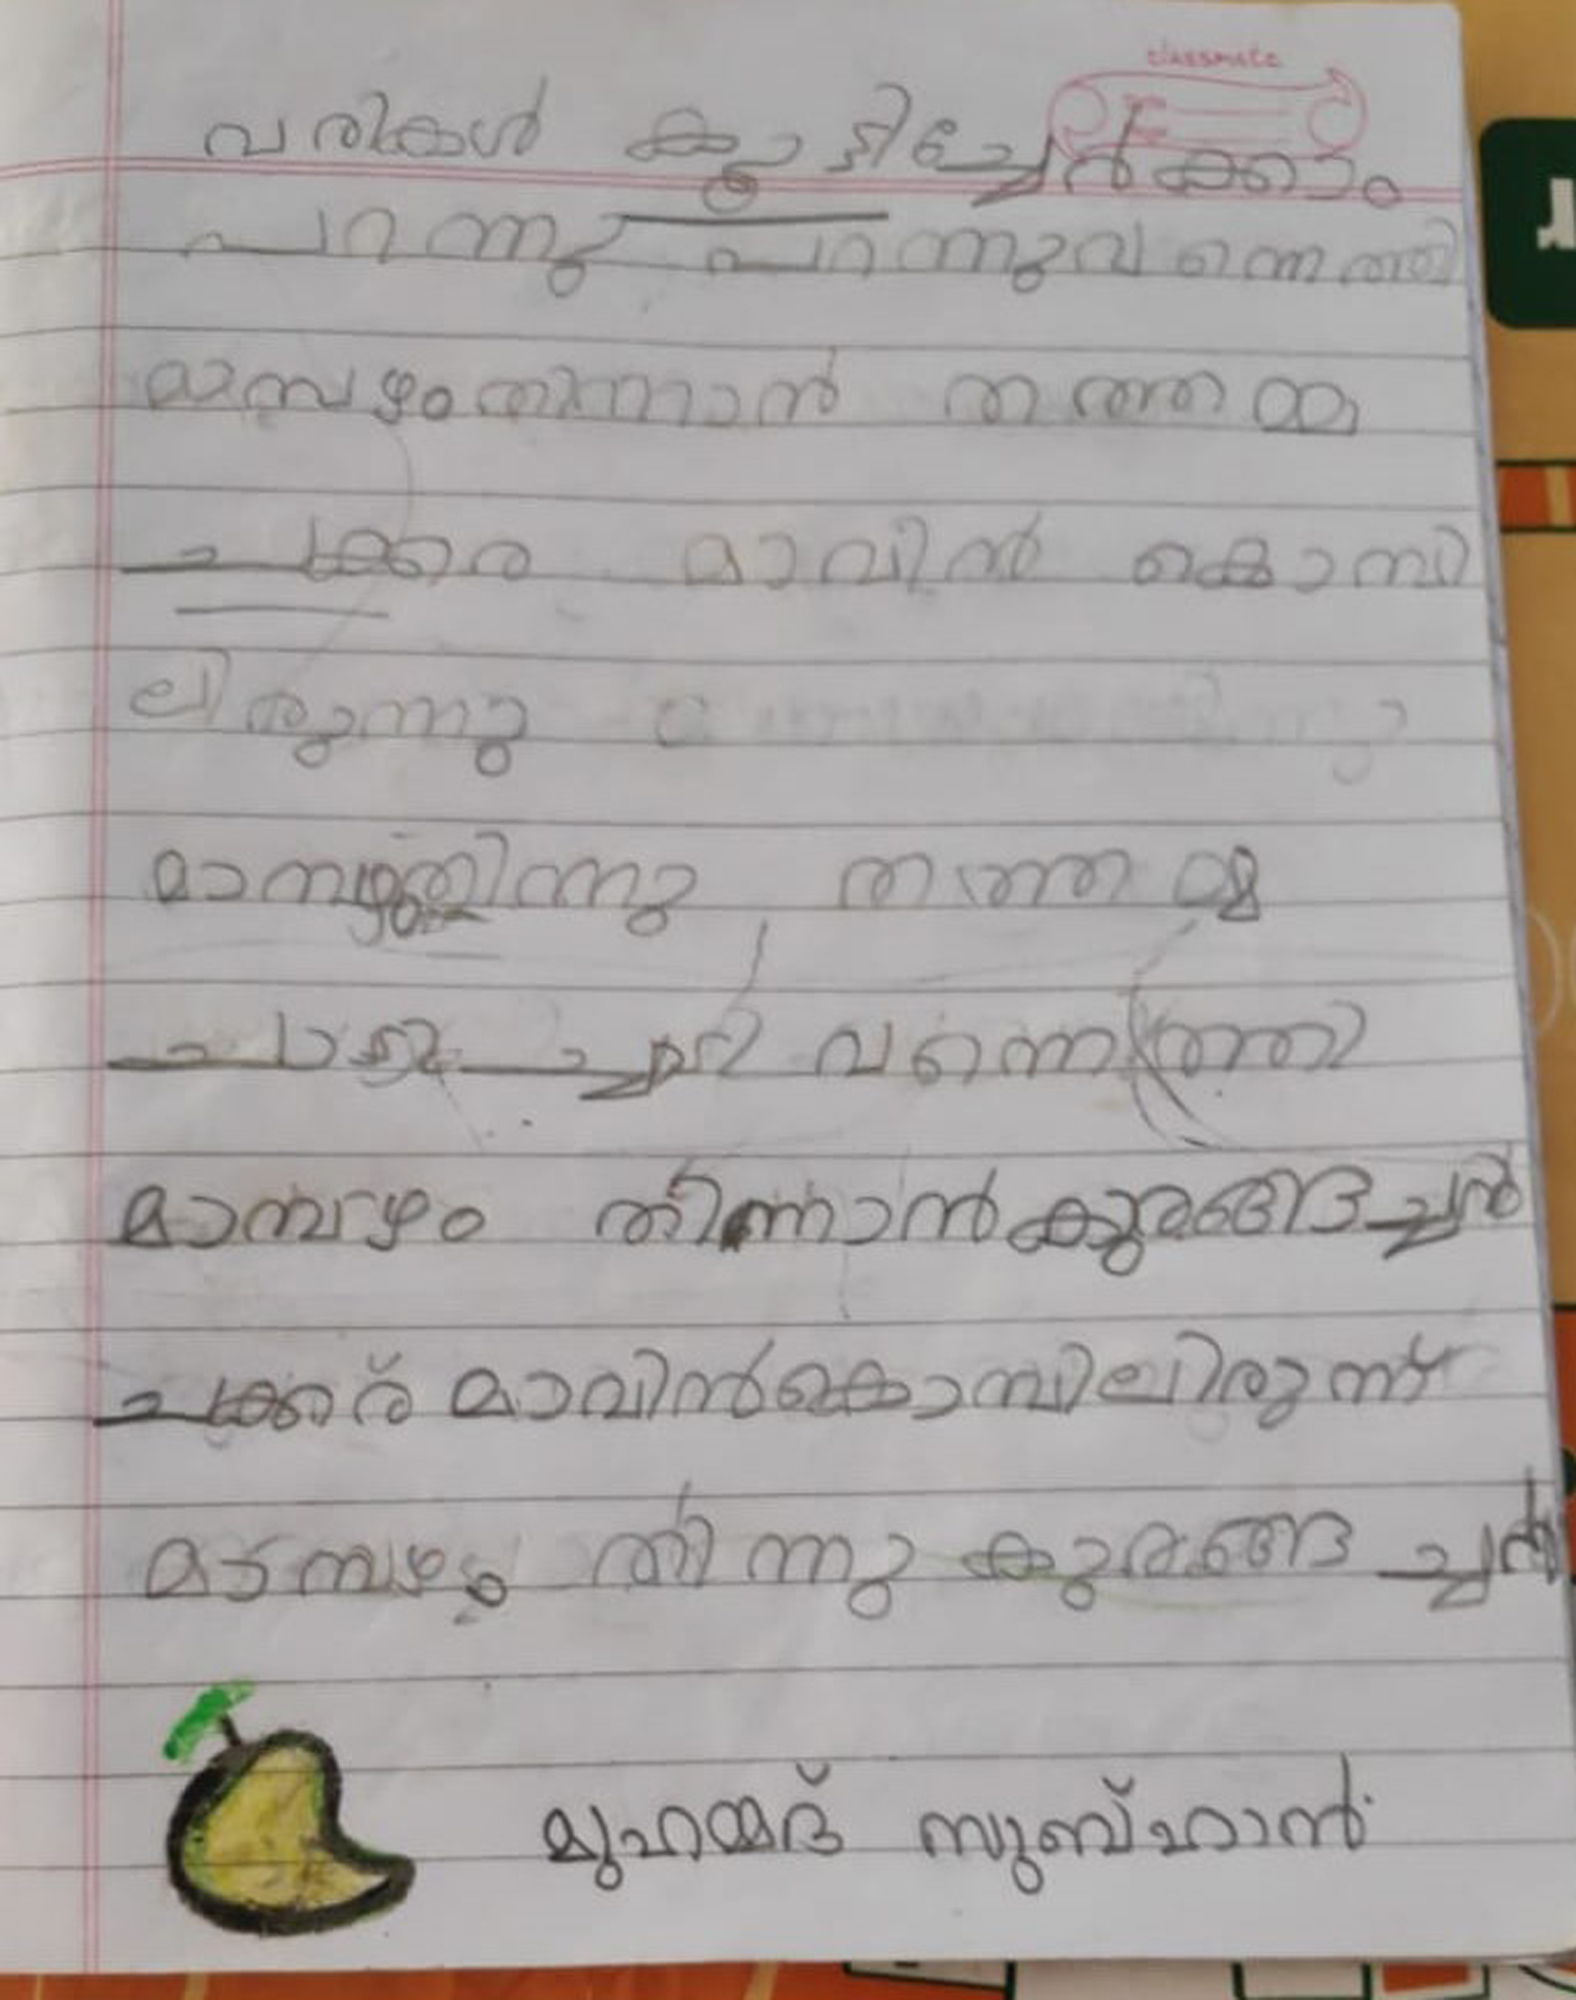 classmate
വരികൾ കൂട്ടിച്ചേർക്കാം
പറന്നു പറന്നുവന്നെത്തി
മാമ്പഴംതിന്നാൻ തത്തമ്മ
ചക്കര മാവിൻ കൊമ്പി
ലിരുന്നു
മാമ്പഴംതിന്നു തത്തമ്മ
ചാടിച്ചാടി വന്നെത്തി
മാമ്പഴം തിന്നാൻ കുരങ്ങച്ചൻ
ചക്കര മാവിൻകൊമ്പിലിരുന്ന്
മാമ്പഴം തിന്നു കുരങ്ങച്ചൻ
മുഹമ്മദ് സുബ്ഹാൻ